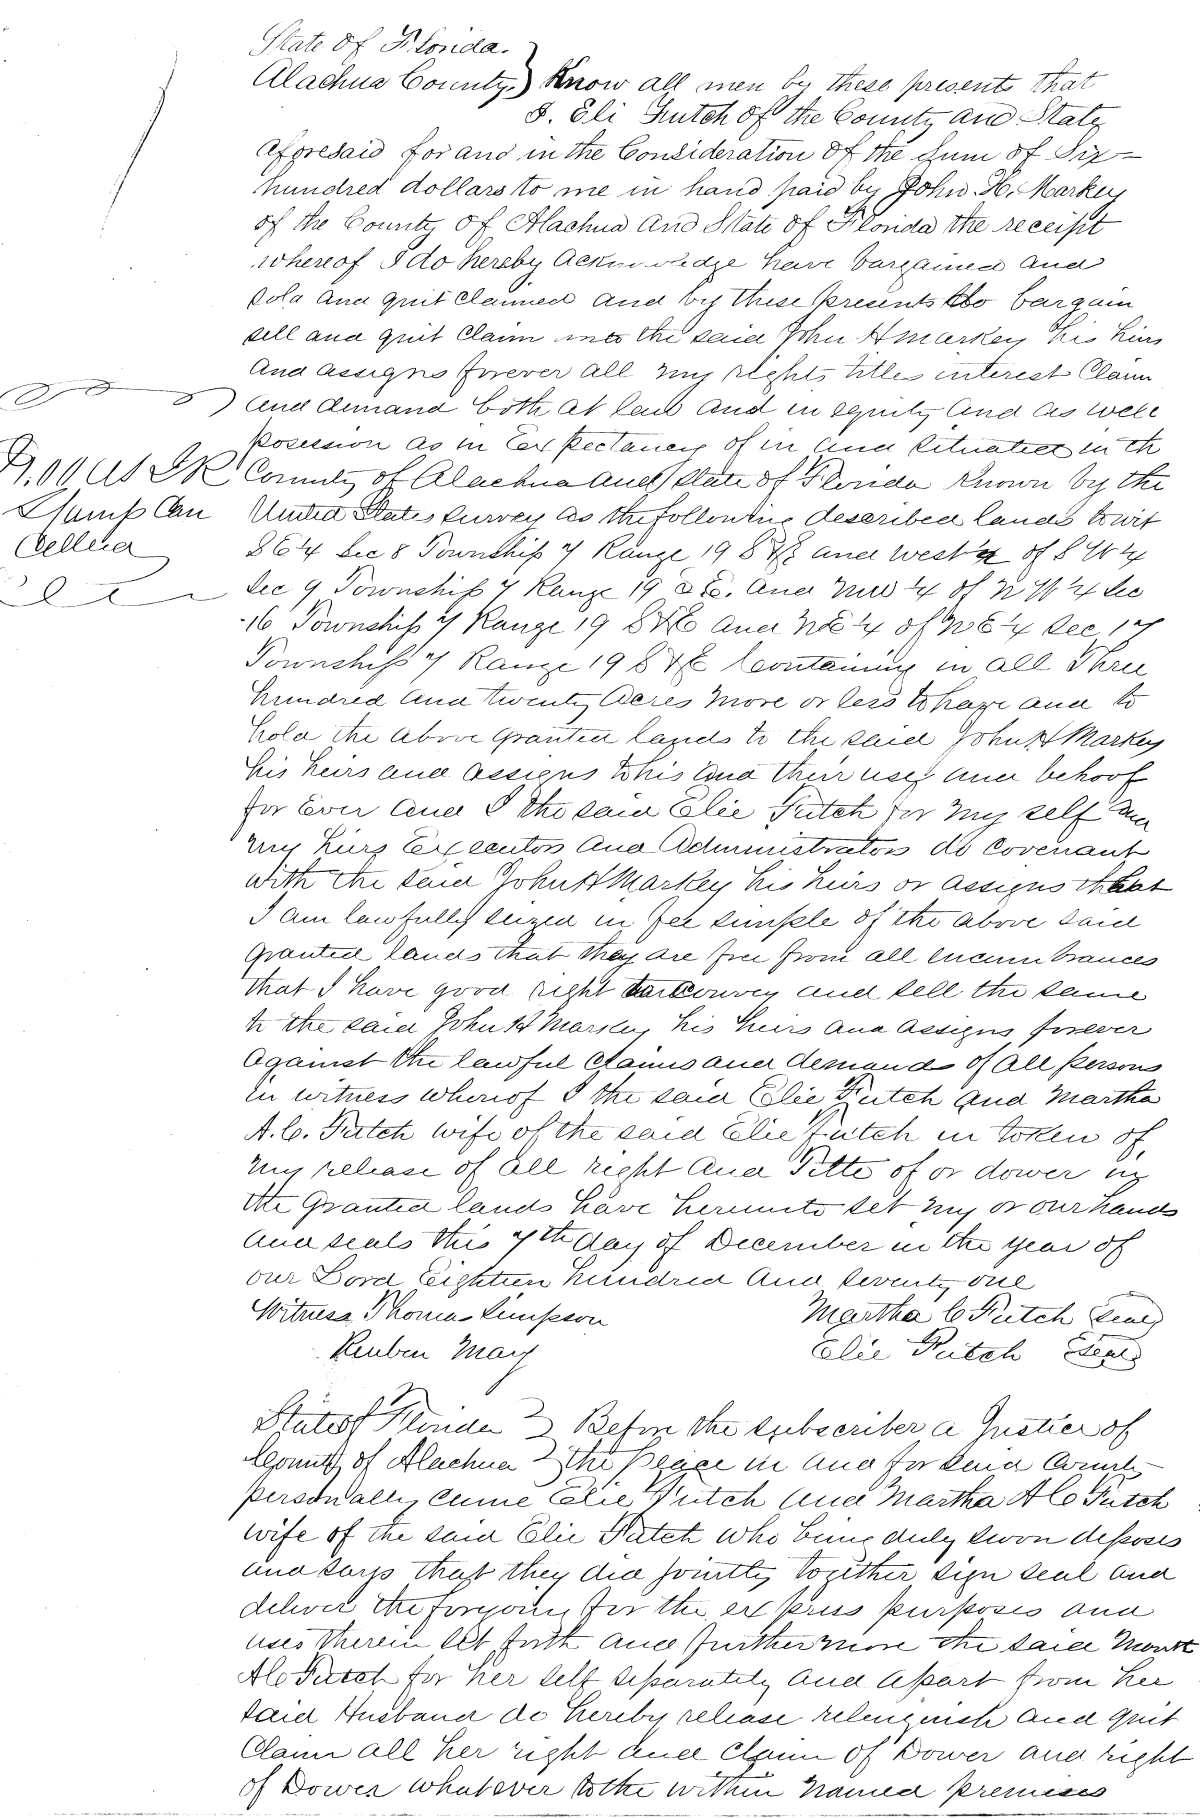 State of Florida.
Alachua County.} Know all men by these presents that
I. Eli Futch of the County and State
aforesaid for and in the Consideration of the Sum of Six-
hundred dollars to me in hand paid by John H. Markey
of the County of Alachua and State of Florida the receipt
whereof I do hereby acknowledge have bargained and
sold and quit claimed and by these presents do bargain
sell and quit claim unto the said John H Markey his hirs
and assigns forever all my rights titles interest Claim
and demand both at law and in equity and as well
posession as in Expectancy of in and situated in th
County of Alachua and State of Florida known by the
United States survey as the following described lands towit
S E 4 Sec 8 Township 7 Range 19 S & E and west ½ of S W 4
Sec 9 Township 7 Range 19 S E. and NW ¼ of N W 4 Sec
16 Township 7 Range 19 S & E and NE 4 of N E 4 Sec 17
Township 7 Range 19 S & E Containing in all Three
hundred and twenty acres more or less to have and to
hold the above granted lands to the said John H Markey
his heirs and assigns to his and their use and behoof
for Ever and I the said Elie Futch for my self and
my hirs Executors and Administrators do covenant
with the said John H Markey his heirs or assigns that
I am lawfully seized in fee simple of the above said
granted lands that they are free from all encumbrances
that I have good right to convey and sell the same
to the said John H Markey his heirs and assigns forever
against the lawful claims and demands of all persons
in witness whereof I the said Elie Futch and Martha
A. C. Futch wife of the said Elie Futch in token of
my release of all right and Title of or dower in
the granted lands have hereunto set my or our hands
and seals this 7th day of December in the year of
our Lord Eighteen hundred and seventy one
Witness Thomas Simpson Martha C Futch Seal
Reuben May Elie Futch Seal
Stamp Can
celled
State of Florida } Before the subscriber a Justice of
County of Alachua } the peace in and for said County
personally came Elie Futch and Martha A C Futch
wife of the said Elie Futch who being duly swon deposes
and says that they did jointly together sign seal and
deliver the forgoing for the express purposes and
uses therein set forth and furthermore the said
A C Futch for her self separately and apart from her
said Husband do hereby release relenquish and quit
Claim all her right and claim of Dower and right
of Dower whatever to the within named premises